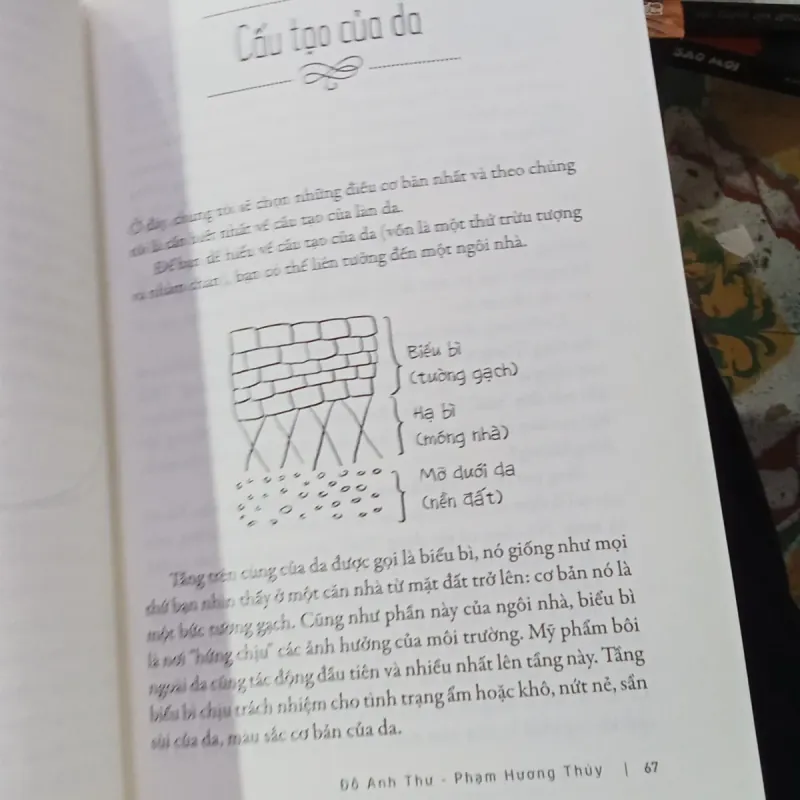 SAO MOI
Cấu tạo của da
Ở đây, chúng tôi sẽ chọn những điều cơ bản nhất và theo chúng
tôi là cần biết nhất về cấu tạo của làn da.
Để bạn dễ hiểu về cấu tạo của da (vốn là một thứ trừu tượng
và nhàm chán), bạn có thể liên tưởng đến một ngôi nhà.
Biểu bì
(tường gạch)
Hạ bì
(móng nhà)
Mỡ dưới da
(nền đất)
Tầng trên cùng của da được gọi là biểu bì, nó giống như mọi
thứ bạn nhìn thấy ở một căn nhà từ mặt đất trở lên: cơ bản nó là
một bức tường gạch. Cũng như phần này của ngôi nhà, biểu bì
là nơi "hứng chịu" các ảnh hưởng của môi trường. Mỹ phẩm bôi
ngoài da cũng tác động đầu tiên và nhiều nhất lên tầng này. Tầng
biểu bì chịu trách nhiệm cho tình trạng ẩm hoặc khô, nứt nẻ, sần
sùi của da, màu sắc cơ bản của da.
Đỗ Anh Thư - Phạm Hương Thủy | 67